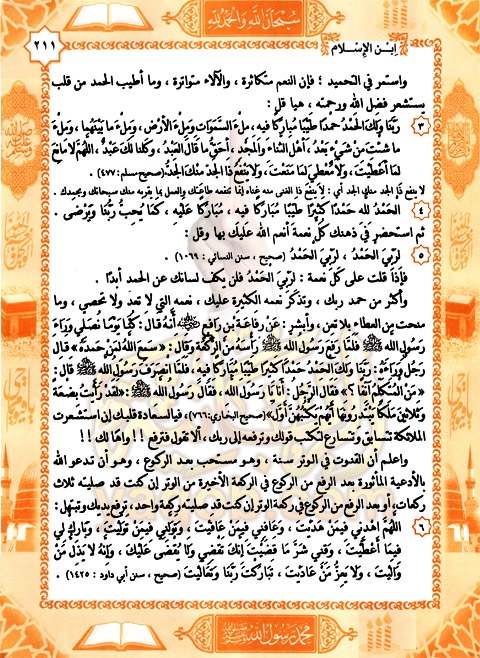 سبحان الله والحمد لله
٢١١
ابن الإسلام
واستمر في التحميد ؛ فإن النعم متكاثرة ، والآلاء متواترة ، وما أطيب الحمد من قلب
يستشعر فضل الله ورحمته ، هيا قل :
٣ رَبَّنَا وَلَكَ الْحَمْدُ حَمْدًا طَيِّبًا مُبَارَكًا فيه ، مِلْءَ السَّمَوَات وَمِلْءَ الأَرْضِ ، وَمِلْءَ مَا بَيْنَهُمَا ، وَمِلْءَ
مَا شئتَ منْ شَيْءٍ بَعْدُ ، أَهْلَ الثَّنَاء وَالْمَجْد ، أَحَقُّ مَا قَالَ العَبْدُ ، وَكُلُّنَا لَكَ عَبْدٌ ، اللَّهُمَّ لَا مَانِعَ
لمَا أَعْطَيْتَ ، وَلَا مُعْطِيَ لمَا مَنَعْتَ ، وَلَا يَنْفَعُ ذَا الجَدِّ منْكَ الجَدُّ (صحيح مسلم: ٤٧٧)
لا ينفع ذا الجد منك الجد أي : لا ينفع ذا الغنى منه غناه إنما تنفعه طاعتك والعمل بما يقربه منك سبحانك وبحمدك .
٤ الْحَمْدُ لله حَمْدًا كَثِيرًا طَيِّبًا مُبَارَكًا فيه ، مُبَارَكًا عَلَيْه ، كَمَا يُحِبُّ رَبُّنَا وَيَرْضَى .
ثم استحضر في ذهنك كل نعمة أنعم الله عليك بها وقل :
٥ لرَبِّيَ الْحَمْدُ ، لرَبِّيَ الْحَمْدُ (صحيح ، سنن النسائي : ١٠٦٩) .
فإذا قلت على كل نعمة : لربِّيَ الْحَمْدُ فلن يكف لسانك عن الحمد أبدًا .
وأكثر من حمد ربك ، وتذكر نعمه الكثيرة عليك ، نعمه التي لا تعد ولا تحصى ، وما
منحت من العطاء بلا ثمن ، وأبشر : عَنْ رِفَاعَةَ بن رَافِعٍ أَنَّهُ قَالَ : كُنَّا يَوْمًا نُصَلِّي وَرَاءَ
رَسُولِ الله ﷺ فَلَمَّا رَفَعَ رَسُولُ الله ﷺ رَأْسَهُ مِنَ الرَّكْعَة وَقَالَ : «سَمِعَ اللَّهُ لمَنْ حَمدَهُ» قَالَ
رَجُلٌ وَرَاءَهُ : رَبَّنَا وَلَكَ الْحَمْدُ حَمْدًا كَثِيرًا طَيِّبًا مُبَارَكًا فيه ، فَلَمَّا انْصَرَفَ رَسُولُ الله ﷺ قَالَ :
«مَنْ الْمُتَكَلِّمُ آنفًا ؟» فَقَالَ الرَّجُلُ : أَنَا يَا رَسُولَ الله ، فَقَالَ رَسُولُ الله ﷺ : «لَقَدْ رَأَيْتُ بضْعَةً
وَثَلَاثينَ مَلَكًا يَبْتَدرُونَهَا أَيُّهُمْ يَكْتُبُهُنَّ أَوَّلَ» (صحيح البخاري: ٧٦٦) ، فيالسعادة قلبك إن استشعرت
الملائكة تتسابق وتتسارع لتكتب قولك وترفعه إلى ربك ، ألا تقول فترفع !! واهًا لك !!
واعلم أن القنوت في الوتر سنة ، وهو مستحب بعد الركوع ، وهو أن تدعو الله
بالأدعية المأثورة بعد الرفع من الركوع في الركعة الأخيرة من الوتر إن كنت قد صليته ثلاث
ركعات ، أو بعد الرفع من الركوع في ركعة الوتر إن كنت قد صليته ركعة واحد ، ترفع يديك وتبتهل :
٦ اللَّهُمَّ اهْدِنِي فيمَنْ هَدَيْتَ ، وَعَافِنِي فيمَنْ عَافَيْتَ ، وَتَوَلَّنِي فيمَنْ تَوَلَّيْتَ ، وَبَارِكْ لِي
فيمَا أَعْطَيْتَ ، وَقِنِي شَرَّ مَا قَضَيْتَ إِنَّكَ تَقْضِي وَلَا يُقْضَى عَلَيْكَ ، وَإِنَّهُ لَا يَذِلُّ مَنْ
وَالَيْتَ ، وَلَا يَعِزُّ مَنْ عَادَيْتَ ، تَبَارَكْتَ رَبَّنَا وَتَعَالَيْتَ (صحيح ، سنن أبي داود : ١٤٢٥) .
محمد رسول الله